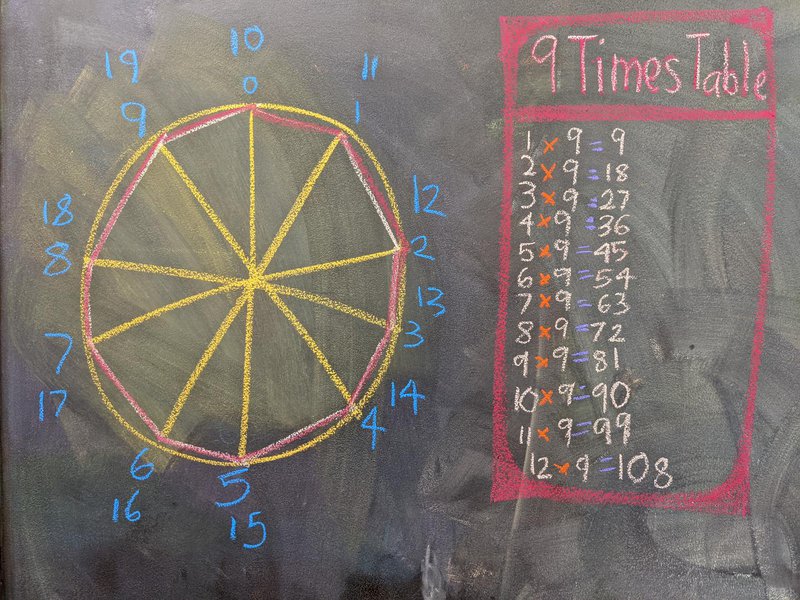 10
19 11
0
9 1
18 12
8 2
13
7 3
17 14
4
6 5
16 15
9 Times Table
1 × 9 = 9
2 × 9 = 18
3 × 9 = 27
4 × 9 = 36
5 × 9 = 45
6 × 9 = 54
7 × 9 = 63
8 × 9 = 72
9 × 9 = 81
10 × 9 = 90
11 × 9 = 99
12 × 9 = 108